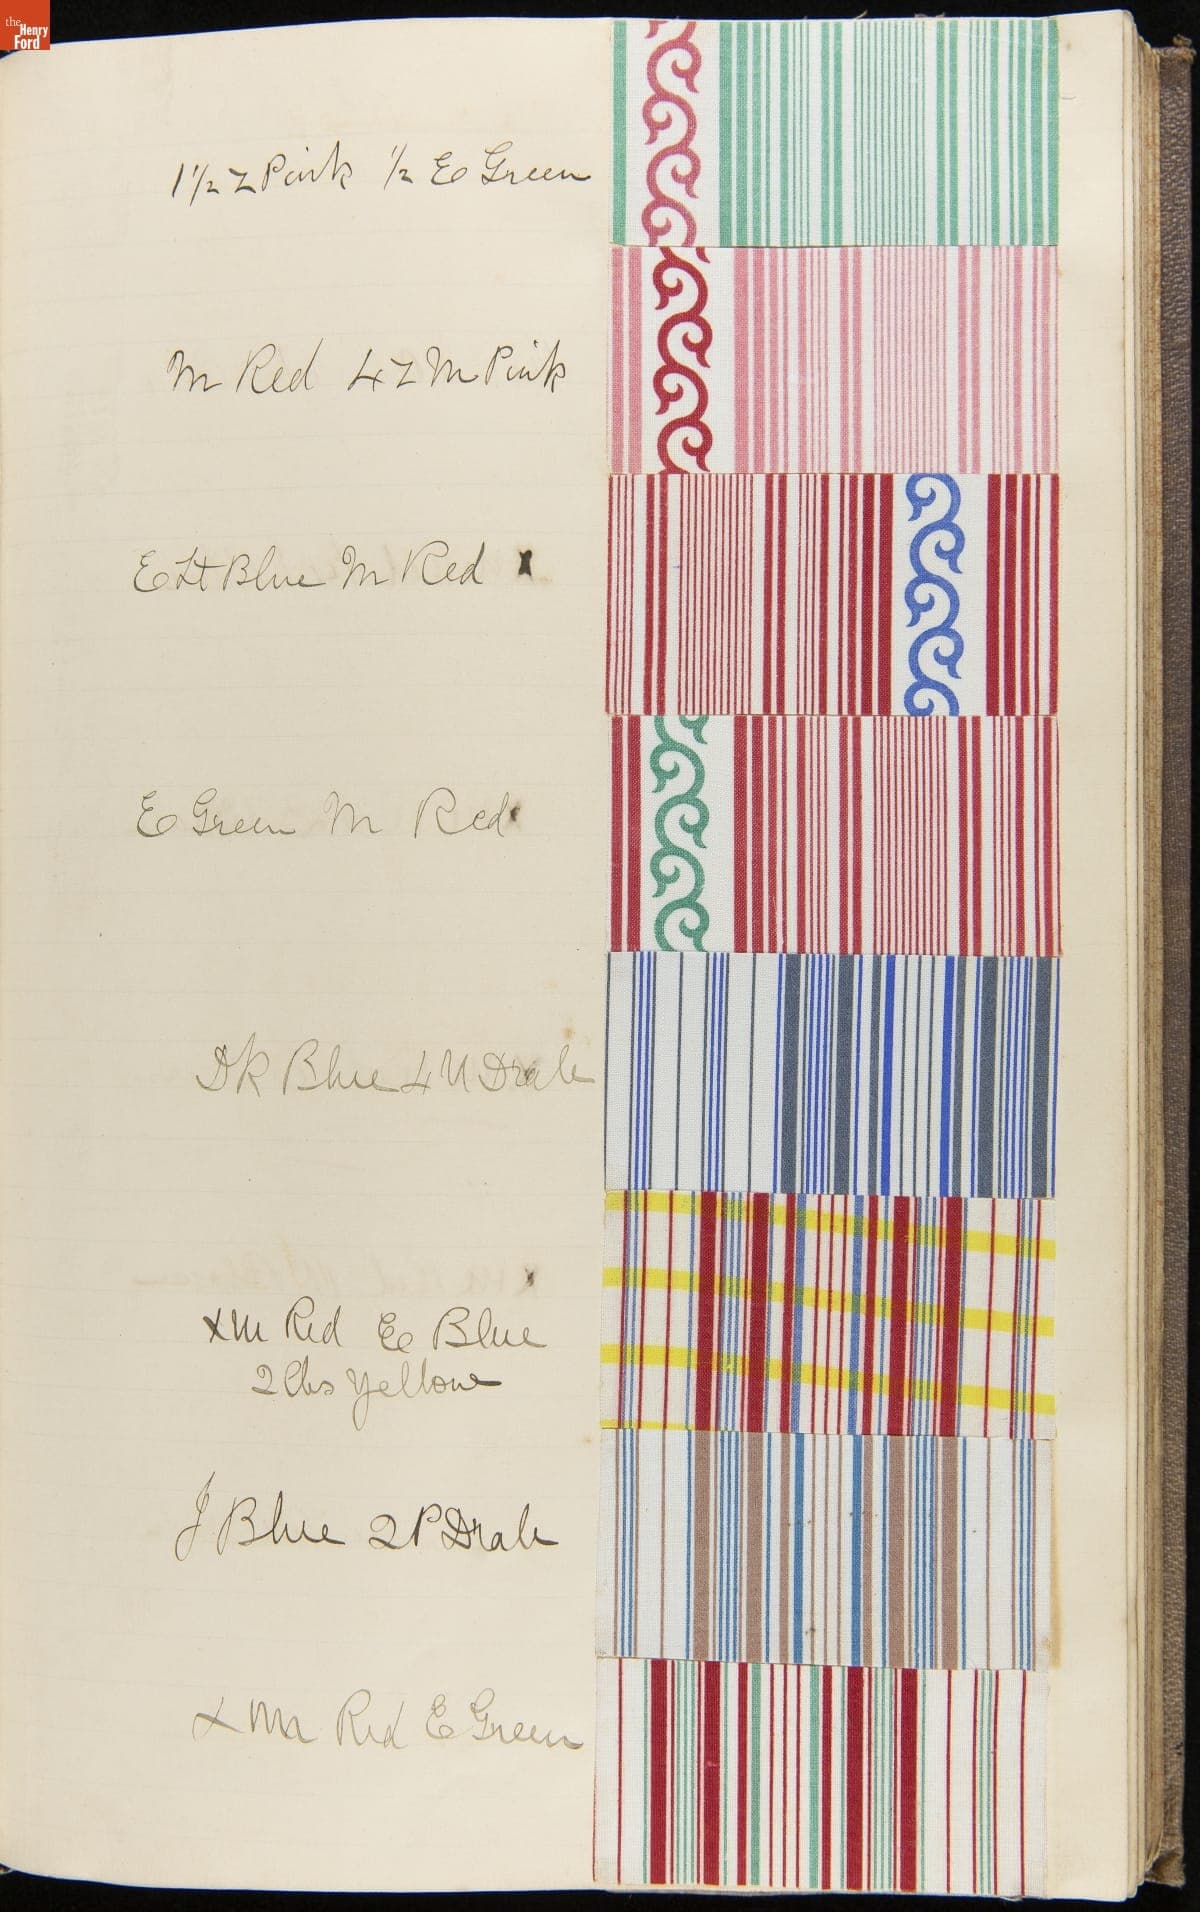 the
Henry
Ford
1 1/2 Z Pink 1/2 E Green
M Red 4 Z M Pink
E Lt Blue M Red x
E Green M Red
Dk Blue 4 U Drab
x M Red E Blue
2 Yellow
J Blue 2 P Drab
x M Red E Green